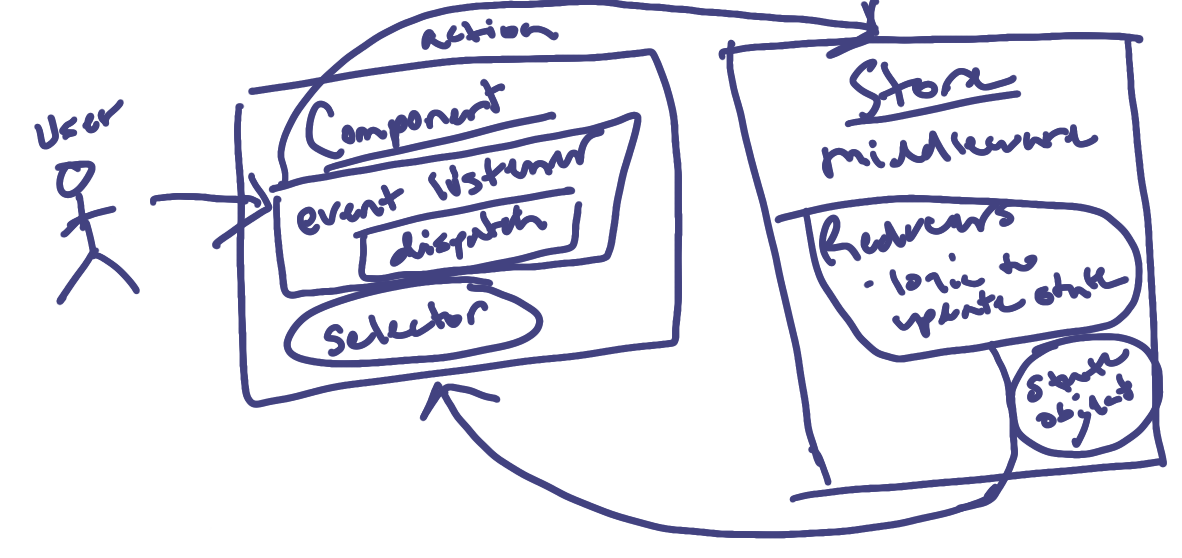 User
Action
Component
event listener
dispatch
selector
Store
middleware
Reducers
• logic to
update state
state
object